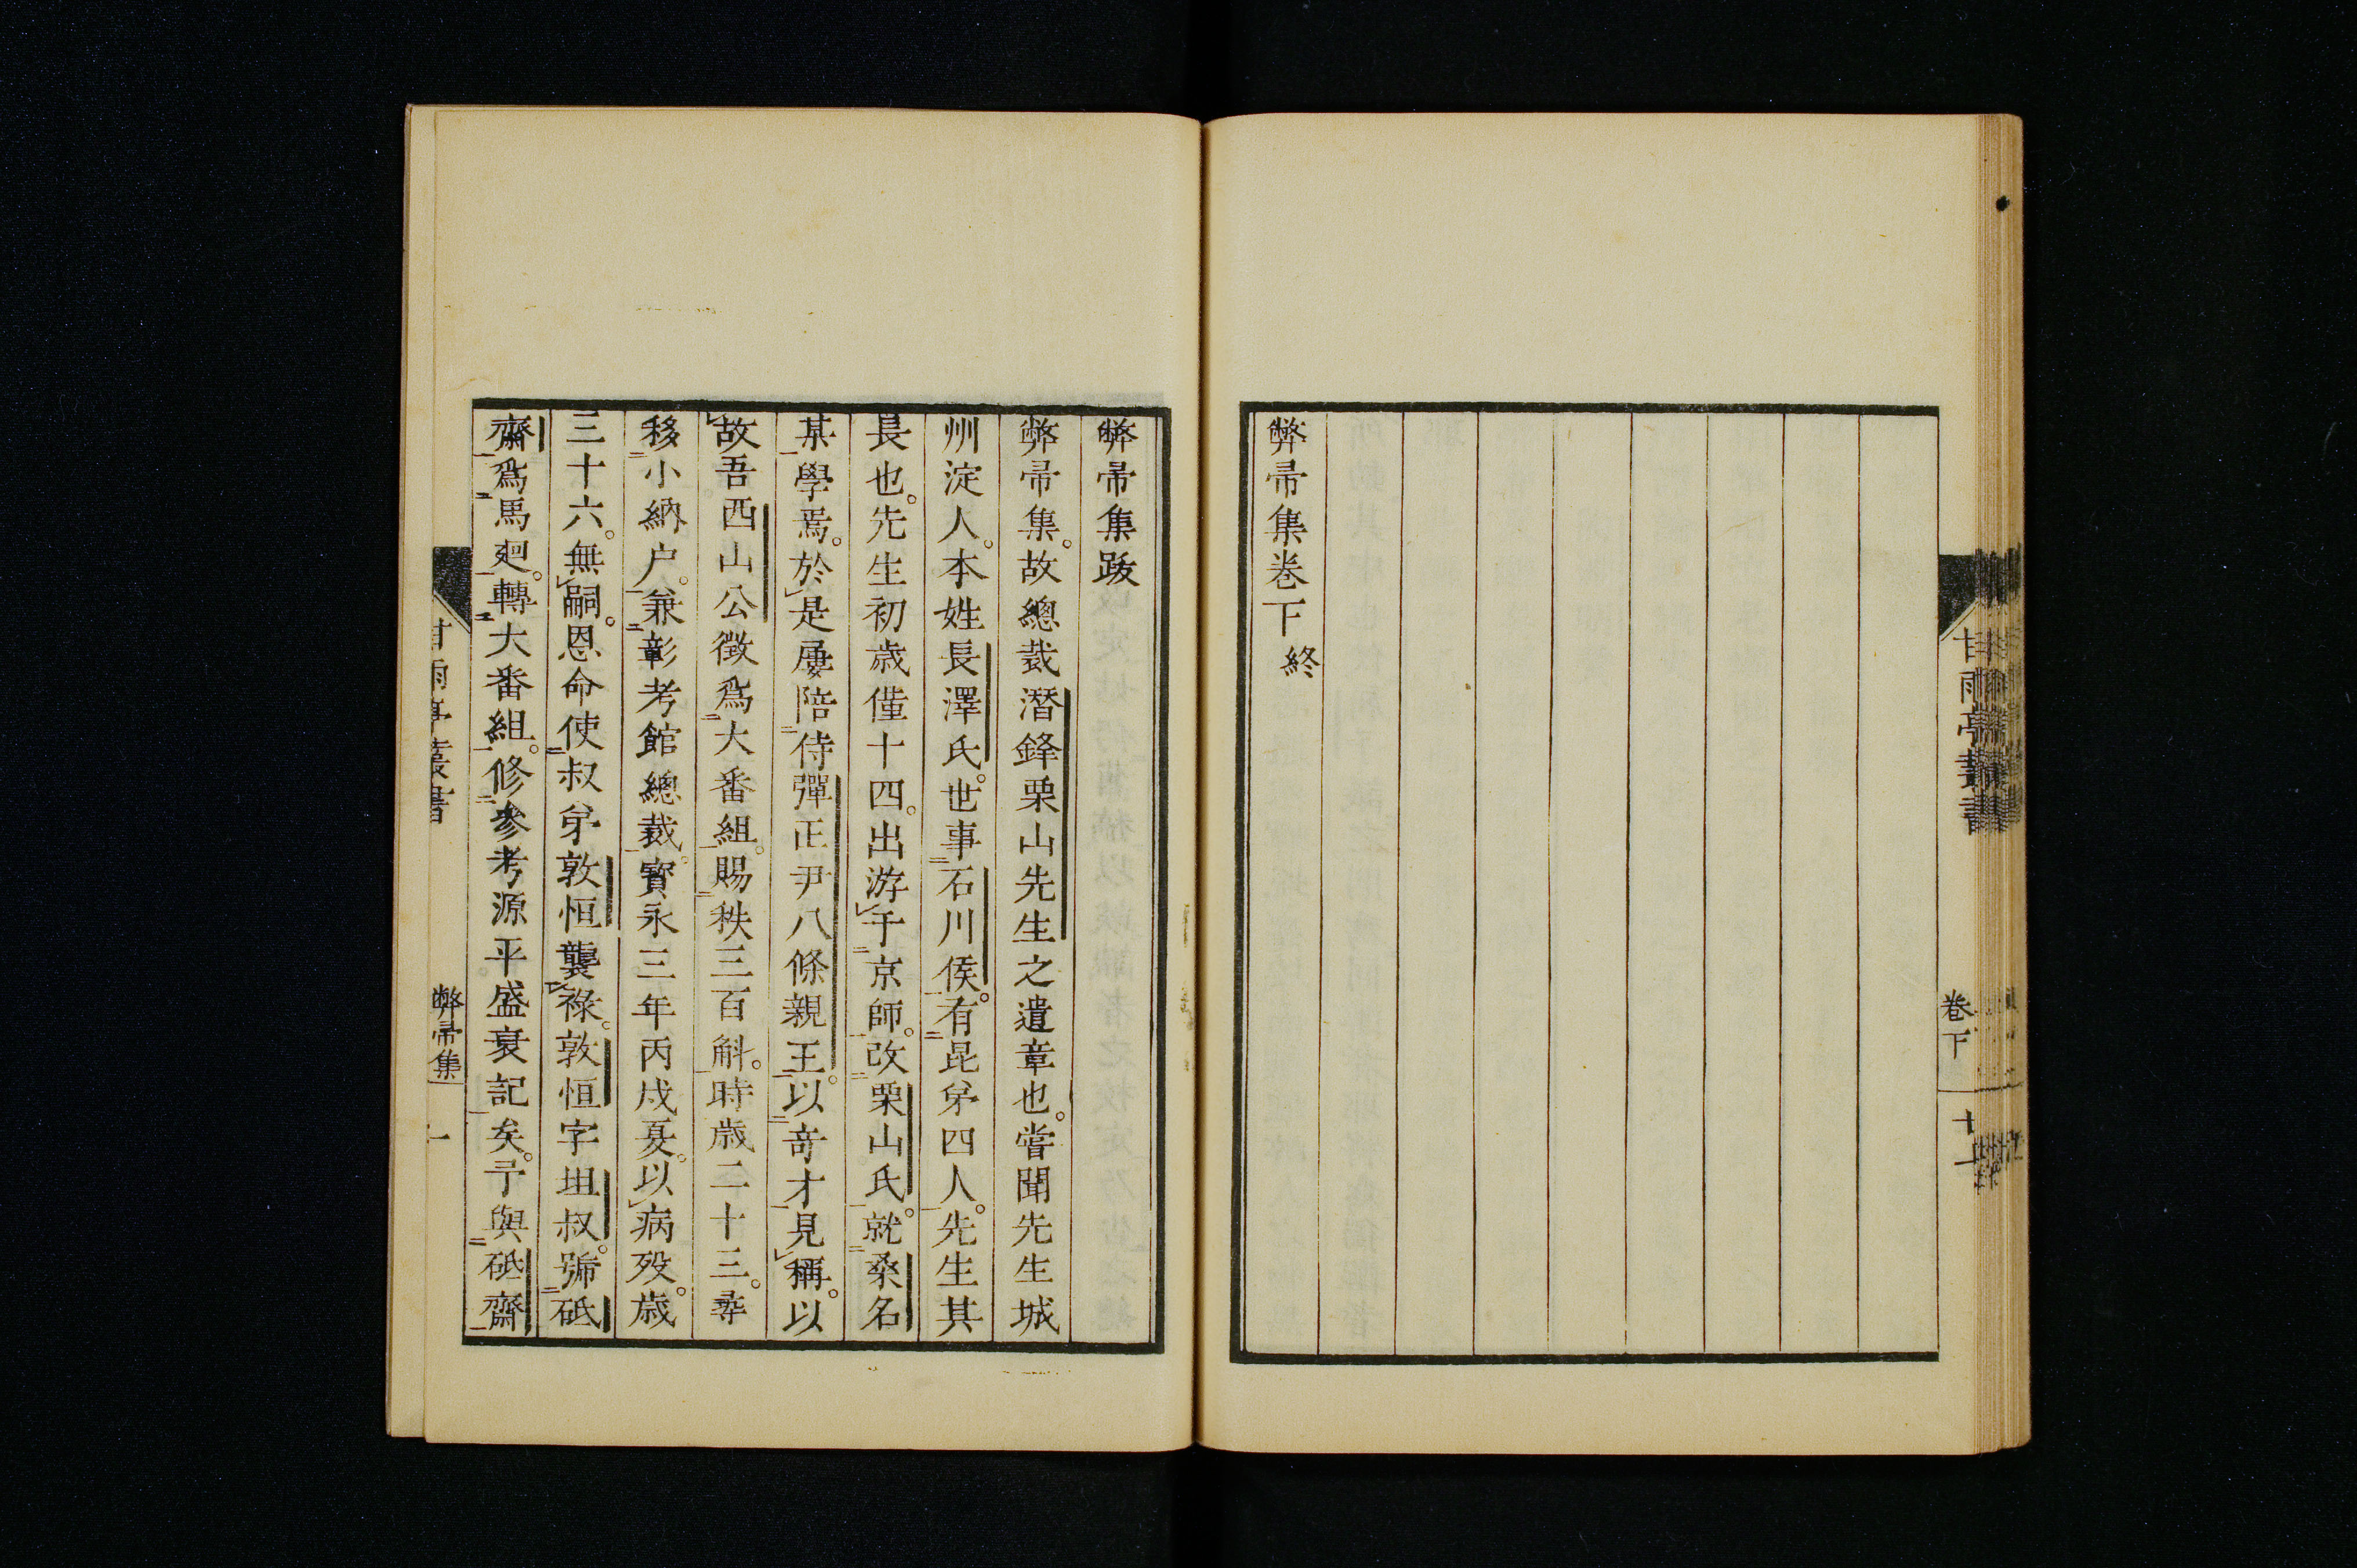 甘雨亭叢書
卷下
弊帚集卷下終
弊帚集跋
弊帚集。故總裁潛鋒栗山先生之遺章也。嘗聞先生城
州淀人。本姓長澤氏。世事石川侯。有昆弟四人。先生其
長也。先生初歲僅十四。出游于京師。改栗山氏。就桑名
某學焉。於是屢陪侍彈正尹八條親王。以奇才見稱。以
故吾西山公徵爲大番組。賜秩三百斛。時歲二十三。尋
移小納戶。兼彰考館總裁。寶永三年丙戌夏。以病歿。歲
三十六。無嗣。恩命使叔弟敦恒襲祿。敦恒字坦叔。號砥
齋。爲馬廻。轉大番組。修參考源平盛衰記矣。予與砥齋
甘雨亭叢書
弊帚集
一